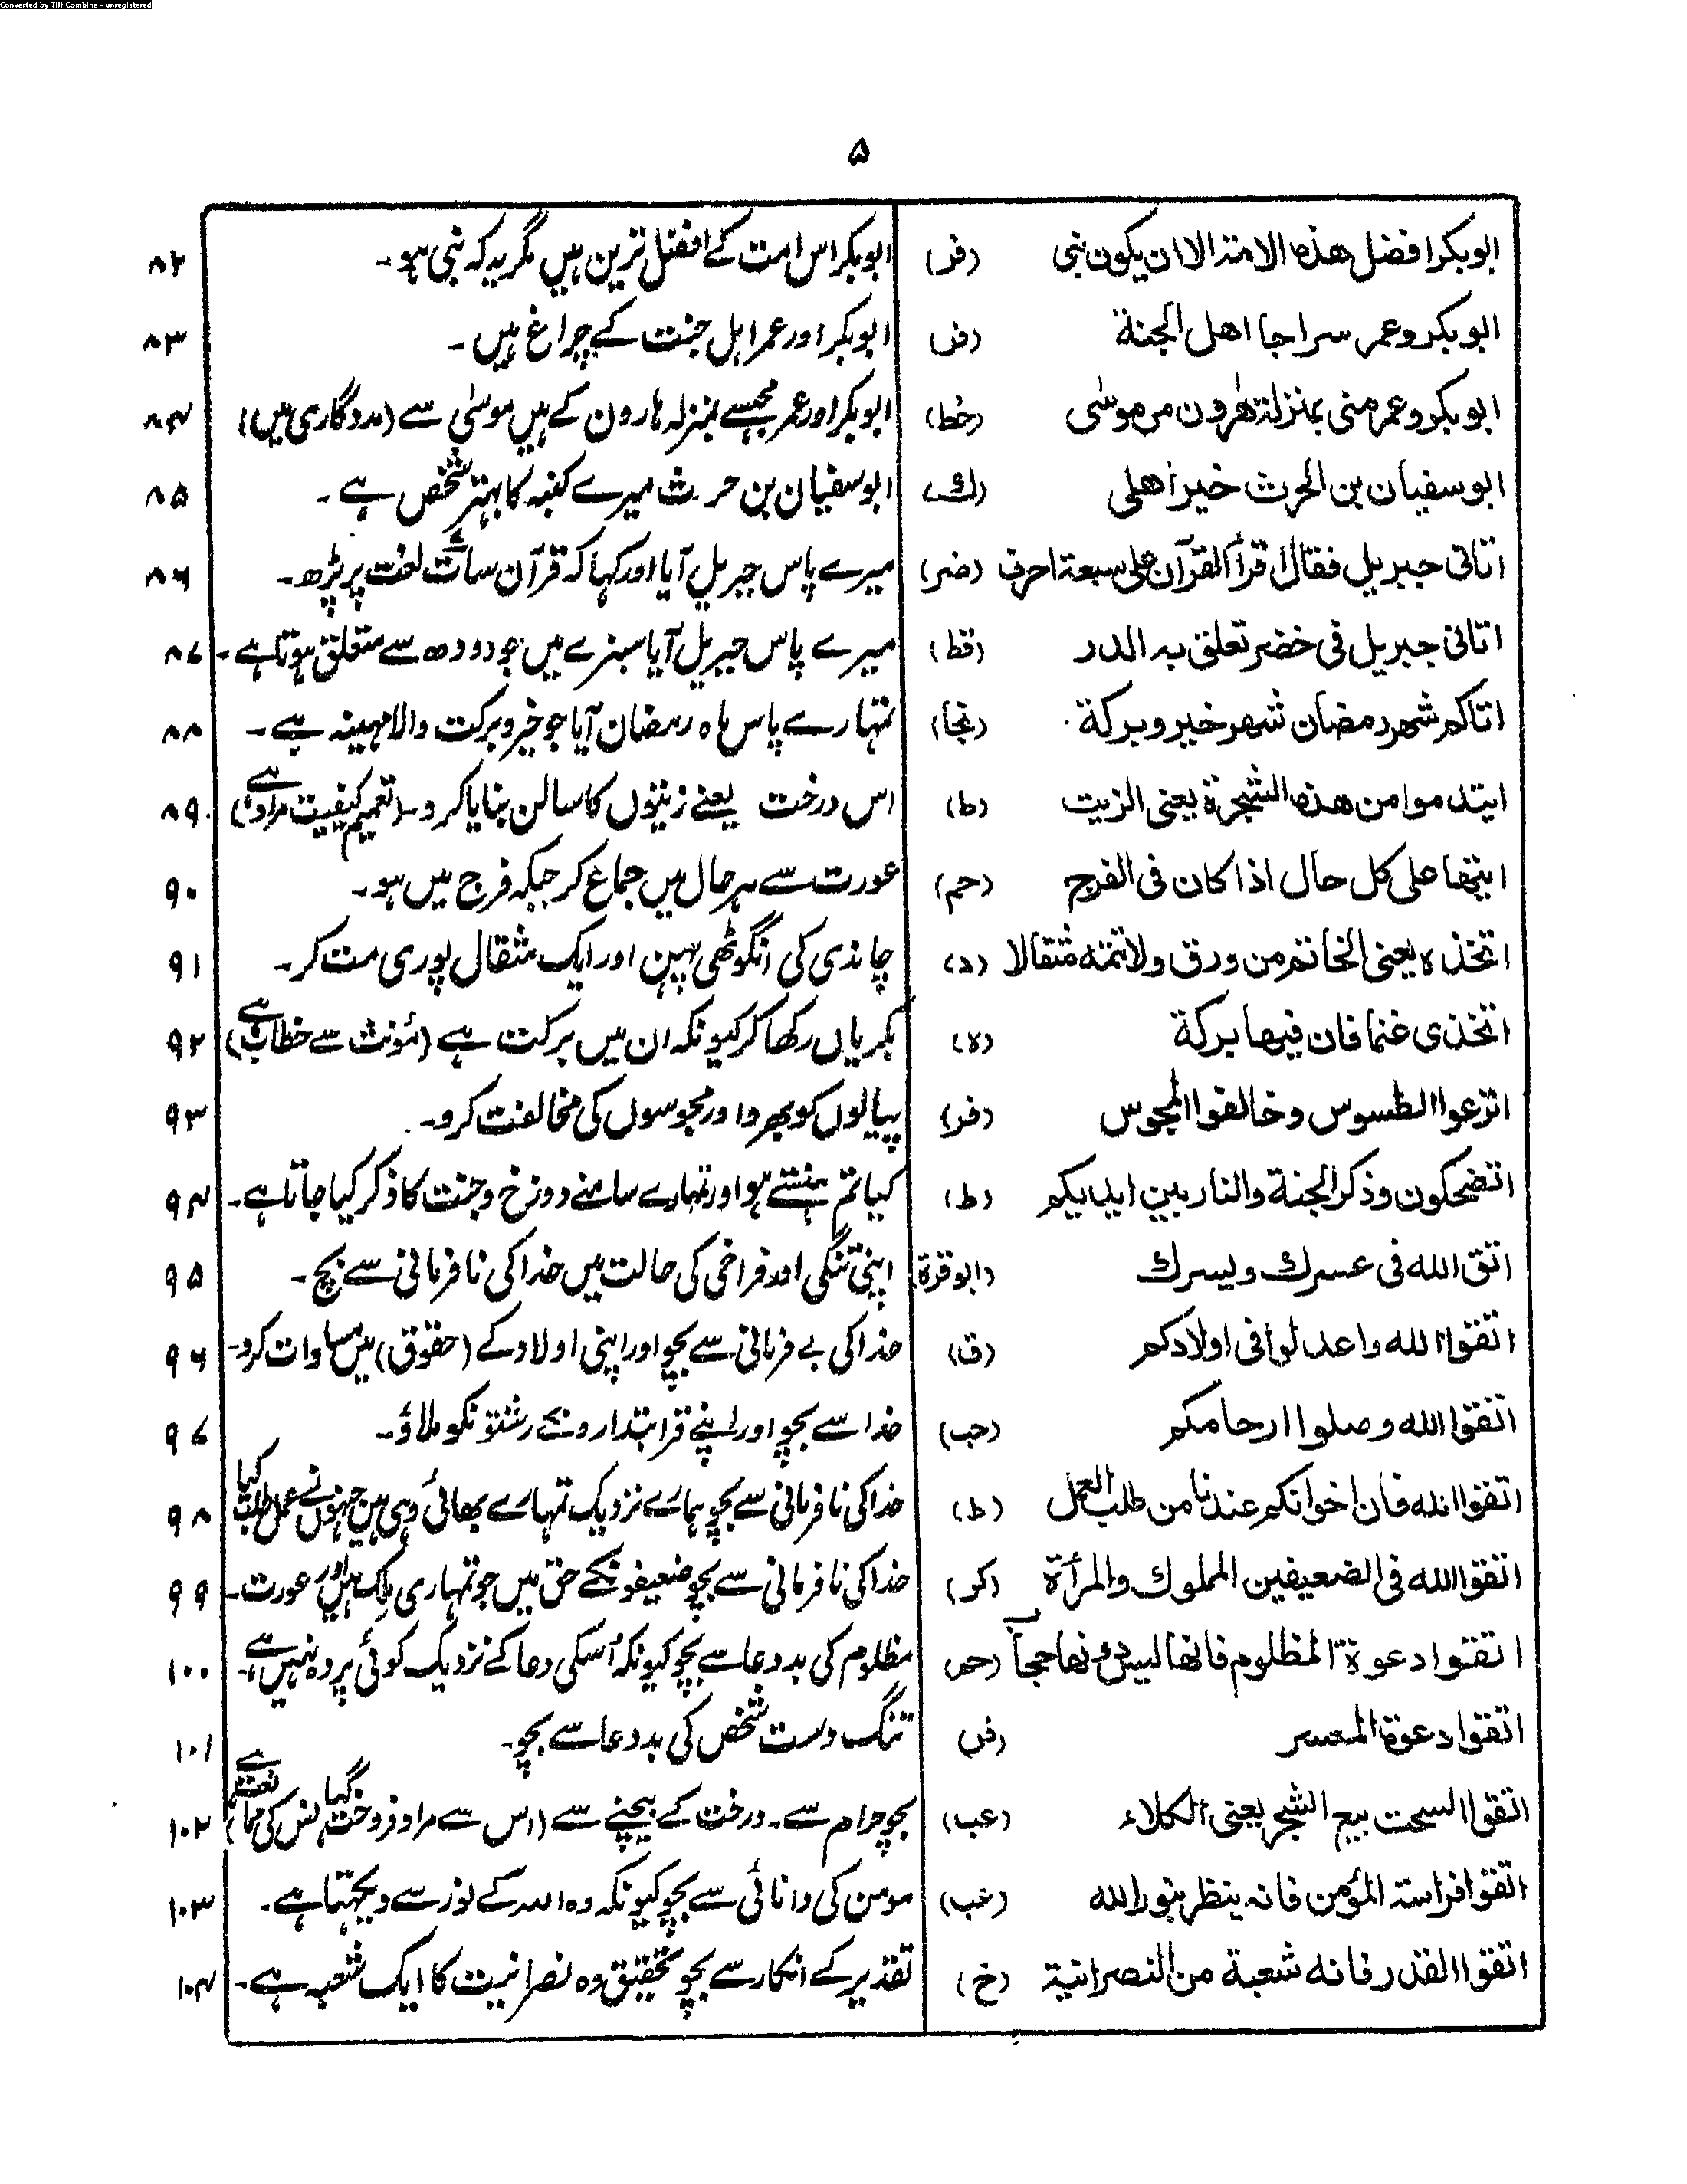 Converted by Tiff Combine - unregistered
۵
ابوبکر افضل هذه الامة الا ان یکون نبی (فر) ابوبکر اس امت کے افضل ترین ہیں مگر یہ کہ نبی ہو۔ ۸۲
ابوبکر وعمر سراجا اهل الجنة (فر) ابوبکر اور عمر اہل جنت کے چراغ ہیں۔ ۸۳
ابوبکر وعمر منی بمنزلة هٰرون من موسٰی (خط) ابوبکر اور عمر مجھسے بمنزلہ ہارون کے ہیں موسٰی سے (مددگاری میں) ۸۴
ابوسفیان بن الحرث خیر اهلی (ك) ابوسفیان بن حرث میرے کنبہ کا بہتر شخص ہے۔ ۸۵
اتانی جبریل فقال اقرأ القرآن علی سبعة احرف (ضر) میرے پاس جبریل آیا اور کہا کہ قرآن سات لغت پر پڑھ۔ ۸۶
اتانی جبریل فی خضر تعلق به الدر (قط) میرے پاس جبریل آیا سبزے میں جو دودھ سے متعلق ہوتا ہے۔ ۸۷
اتاکم شهر رمضان شهر خیر وبرکة (نجا) تمہارے پاس ماہ رمضان آیا جو خیر و برکت والا مہینہ ہے۔ ۸۸
ایتدموا من هذه الشجرة یعنی الزیت (ط) اس درخت یعنے زیتوں کا سالن بنایا کرو۔ (تعمیم کیفیت مراد ہے) ۸۹
ایتها علی کل حال اذا کان فی الفرج (حم) عورت سے ہر حال میں جماع کر جبکہ فرج میں ہو۔ ۹۰
اتخذه یعنی الخاتم من ورق ولا تتمه مثقالا (د) چاندی کی انگوٹھی پہین اور ایک مثقال پوری مت کر۔ ۹۱
اتخذی غنما فان فیها برکة (ه) بکریاں رکھا کر کیونکہ ان میں برکت ہے (مؤنث سے خطاب ہے) ۹۲
اترعوا الطسوس وخالفوا المجوس (فر) پیالوں کو بھرو اور مجوسوں کی مخالفت کرو۔ ۹۳
اتضحکون وذکر الجنة والنار بین ایدیکم (ط) کیا تم ہنستے ہو اور تمہارے سامنے دوزخ و جنت کا ذکر کیا جاتا ہے۔ ۹۴
اتق الله فی عسرك ویسرك (ابو قرة) اپنی تنگی اور فراخی کی حالت میں خدا کی نافرمانی سے بچ۔ ۹۵
اتقوا الله واعدلوا فی اولادکم (ق) خدا کی بے فرمانی سے بچو اور اپنی اولاد کے (حقوق) میں مساوات کرو۔ ۹۶
اتقوا الله وصلوا ارحامکم (حب) خدا سے بچو اور اپنے قرابتدارونکے رشتونکو ملاؤ۔ ۹۷
اتقوا الله فان اخوانکم عندنا من طلب العمل (ط) خدا کی نافرمانی سے بچو ہمارے نزدیک تمہارے بھائی وہی ہیں جنہوں نے عمل طلب کیا ۹۸
اتقوا الله فی الضعیفین المملوك والمرأة (کر) خدا کی نافرمانی سے بچو ضعیفونکے حق میں جو تمہاری ملک ہیں اور عورت۔ ۹۹
اتقوا دعوة المظلوم فانها لیس دونها حجاب (حم) مظلوم کی بددعا سے بچو کیونکہ اسکی دعا کے نزدیک کوئی پردہ نہیں ہے۔ ۱۰۰
اتقوا دعوة المعسر (فر) تنگ دست شخص کی بددعا سے بچو۔ ۱۰۱
اتقوا السحت بیع الشجر یعنی الکلاء (عب) بچو حرام سے۔ درخت کے بیچنے سے (اس سے مراد فروخت گیاہ کی ممانعت ہے) ۱۰۲
اتقوا فراسة المؤمن فانه ینظر بنور الله (عب) مومن کی دانائی سے بچو کیونکہ وہ اللہ کے نور سے دیکھتا ہے۔ ۱۰۳
اتقوا القدر فانه شعبة من النصرانیة (خ) تقدیر کے انکار سے بچو تحقیق وہ نصرانیت کا ایک شعبہ ہے۔ ۱۰۴